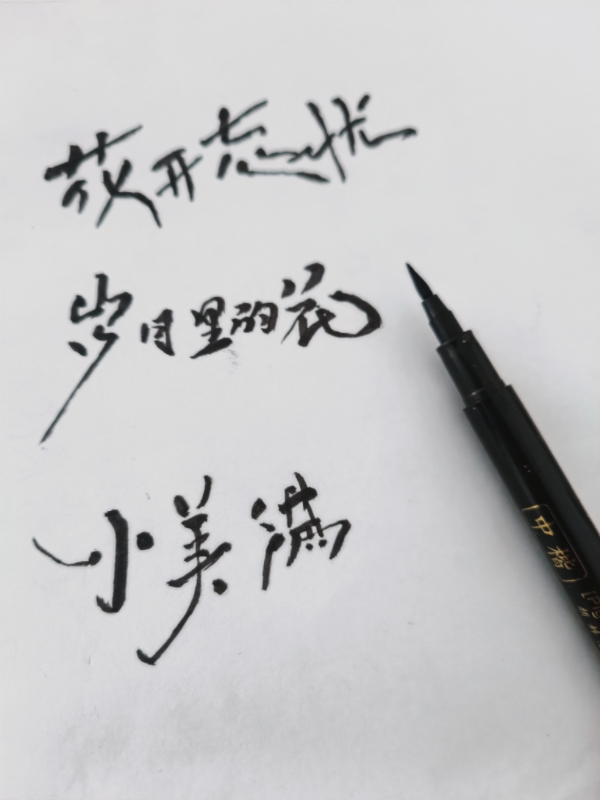 花开忘忧
岁月里的花
小美满
中楷